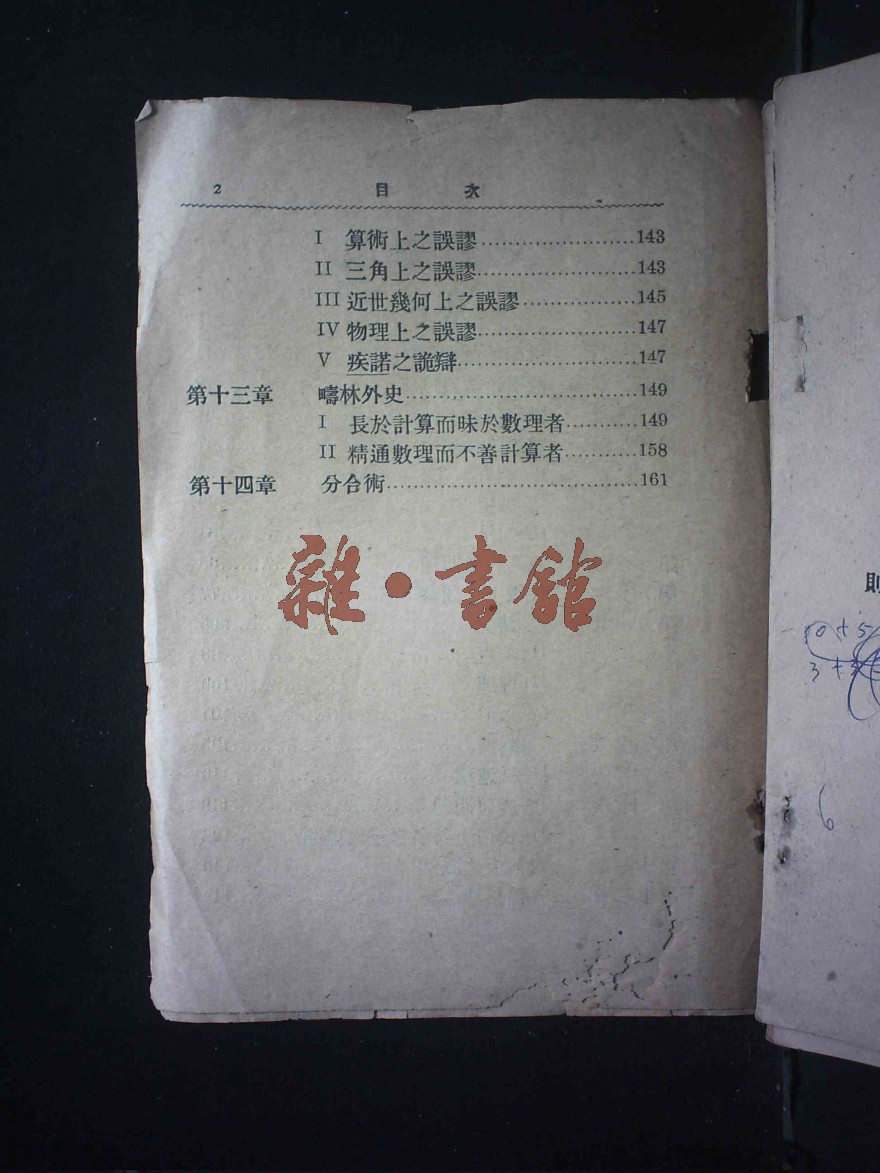 2 目 次
I 算術上之誤謬........................143
II 三角上之誤謬........................143
III 近世幾何上之誤謬.................145
IV 物理上之誤謬........................147
V 疾諾之詭辯...........................147
第十三章 疇林外史...................................149
I 長於計算而昧於數理者...........149
II 精通數理而不善計算者...........158
第十四章 分合術......................................161
雜·書館
則
6